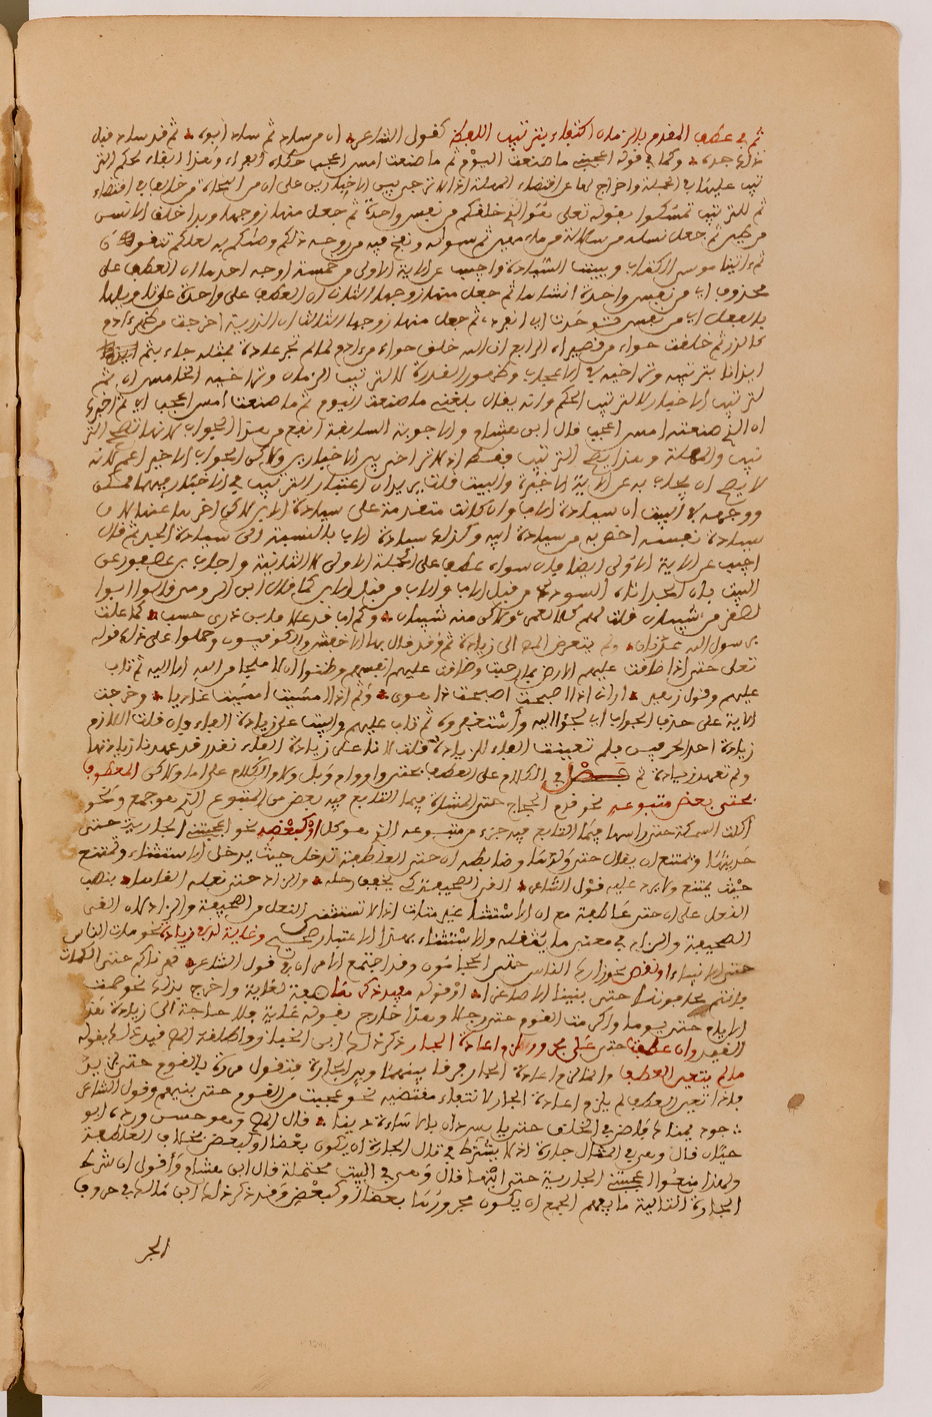 ثم في عطف المقدم بالزمان اكتفاء بترتيب اللفظ كقول الشاعر ان من ساد ثم ساد ابوه ثم قد ساد قبل
ذلك جده وكما في قوله اعجبني ما صنعت اليوم ثم ما صنعت امس اعجب حكاه الفراء وهذا ابقاء لحكم التر
تيب عليها في الجملة واخراج لها عن اقتضاء المهلة اذ لا تراخي بين الاخبارين على ان من النحاة من خالف في اقتضاء
ثم للترتيب تمسكوا بقوله تعالى هو الذي خلقكم من نفس واحدة ثم جعل منها زوجها وبدا خلق الانسن
من طين ثم جعل نسله من سلالة من ماء مهين ثم سواه ونفخ فيه من روحه ذلكم وصاكم به لعلكم تتقون
ثم ءاتينا موسى الكتاب وببيت الشهادة واجيب عن الاية الاولى من خمسة اوجه احدها ان العطف على
محذوف اي من نفس واحدة انشاها ثم جعل منها زوجها الثاني ان العطف على واحدة على تاويلها
بالفعل اي من نفس توحدت اي انفردت ثم جعل منها زوجها الثالث ان الذرية اخرجت من ظهر ءادم
كالذر ثم خلقت حواء من قصيراه الرابع ان خلق حواء من ءادم لما لم تجر عادة بمثله جاء بثم
ايذانا بترتبه وتراخيه في الاعجاب وظهور القدرة لا لترتيب الزمان وتراخيه الخامس ان ثم
لترتيب الاخبار لا لترتيب الحكم وانه يقال بلغني ما صنعت اليوم ثم ما صنعت امس اعجب اي ثم اخبرك
ان الذي صنعته امس اعجب قال ابن هشام والاجوبة السابقة انفع من هذا الجواب لانها تصحح التر
تيب والمهلة وهذا يصحح الترتيب فقط اذ لا تراخي بين الاخبارين ولاكن الجواب الاخير اعم لانه
لا يصح ان يجاب به عن الاية الاخيرة والبيت قلت يريد ان اعتبار الترتيب في الاخبار فيهما ممكن
ووجهه في البيت ان سيادة الاب وان كانت متقدمة على سيادة الابن لاكن اخر عنها لان
سيادة نفسه اخص به من سيادة ابيه وكذلك سيادة الاب بالنسبة الى سيادة الجد ثم قال
اجيب عن الاية الاولى ايضا بان سواه عطف على الجملة الاولى لا الثانية واجاب بن عصفور عن
البيت بان المراد اتاه السودد من قبل الاب والاب من قبل الابن كما قال ابن الرومي قالوا ابوا
لصقر من شيبان قلت لهم كلا لعمري ولاكن منه شيبان وكم اب قد علا بابن ذرى حسب كما علت
برسول الله عدنان ولم يتعرض الى زيادة ثم وقد قال بها الاخفش والكوفيون وحملوا على ذلك قوله
تعلى حتى اذا ضاقت عليهم الارض بما رحبت وضاقت عليهم انفسهم وظنوا ان لا ملجا من الله الا اليه ثم تاب
عليهم وقول زهير اراني اذا اصبحت اصبحت ذا هوى فثم اذا امسيت امسيت غاديا وخرجت
الاية على حذف الجواب اي لجؤا اليه واستغفروه ثم تاب عليهم والبيت على زيادة الفاء فان قلت اللازم
زيادة احد الحرفين فلم تعينت الفاء للزيادة قلت لانا على زيادة الفاء نقدر قد عهدنا زيادتها
ولم تعهد زيادة ثم فصل في الكلام على العطف بحتى واو وام وبل ولا والكلام على اما ولاكن المعطوف
بحتى بعض متبوعه نحو قدم الحجاج حتى المشاة فيما التابع فيه بعض من المتبوع الذي هو جمع ونحو
اكلت السمكة حتى راسها فيما التابع فيه جزء من متبوعه الذي هو كل او كبعضه نحو اعجبتني الجارية حتى
حديثها ويمتنع ان يقال حتى ولدها وضابطه ان حتى العاطفة تدخل حيث يدخل الاستثناء وتمتنع
حيث يمتنع ولا يرد عليه قول الشاعر القى الصحيفة كي يخفف رحله والزاد حتى نعله القاها بنصب
النعل على ان حتى عاطفة مع ان الاستثناء غير متات اذ لا تستثنى النعل من الصحيفة والزاد لان القى
الصحيفة والزاد في معنى ما يثقله والاستثناء بهذا الاعتبار صحيح وغاية له في زيادة نحو مات الناس
حتى الانبياء او نقص نحو زارك الناس حتى الحجامون وقد اجتمع الامران في قول الشاعر قهرناكم حتى الكماة
فانتم تهابوننا حتى بنينا الاصاغرا وقوله مفيد ذكرها صفة لغاية واخرج بذلك نحو صمت
الايام حتى يوما ولاكن مت القوم حتى رجلا وهذا خارج بقوله غاية فلا حاجة الى زيادة هذا
القيد وان عطفت حتى على مجرور لزم اعادة الجار ذكر ذلك ابن الخباز واطلقه وقيده بقوله
ما لم يتعين العطف وانما لزم اعادة الجار فرقا بينها وبين الجارة فتقول مررت بالقوم حتى بزيد
فاذا تعين العطف لم يلزم اعادة الجار لانتفاء مقتضيه نحو عجبت من القوم حتى بنيهم وقول الشاعر
جود يمناك فاض في الخلق حتى بايس دان بالاساءة دينا قال وهو حسن ورده ابو
حيان قال وهي في المثال جارة اذ لا يشترط في تالي الجارة ان يكون بعضا او كبعض بخلاف العاطفة
ولهذا منعوا اعجبتني الجارية حتى ابنها قال وهي في البيت محتملة قال ابن هشام واقول ان شرط
الجارة التالية ما يفهم الجمع ان يكون مجرورها بعضا او كبعض وقد ذكر ذلك ابن مالك في حروف
الجر